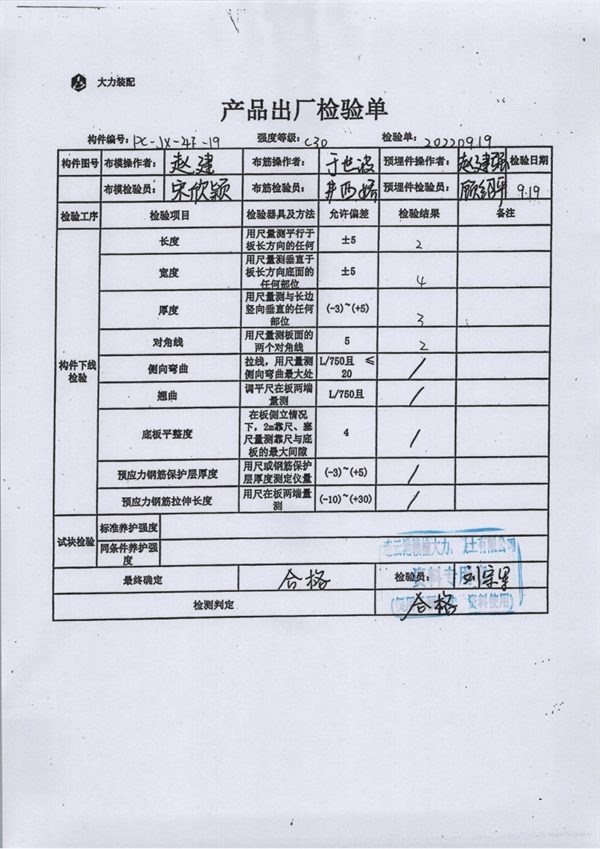 大力装配
产品出厂检验单
构件编号: PC-JX-4F-19 强度等级: C30 检验单: 20220919
构件图号 布模操作者: 赵建 布筋操作者: 于世波 预埋件操作者: 赵建强 检验日期
布模检验员: 宋欣颖 布筋检验员: 井西娇 预埋件检验员: 9.19
检验工序 检验项目 检验器具及方法 允许偏差 检验结果 备注
构件下线检验
长度 用尺量测平行于板长方向的任何 ±5 2
宽度 用尺量测垂直于板长方向底面的任何部位 ±5 4
厚度 用尺量测与长边竖向垂直的任何部位 (-3)~(+5) 3
对角线 用尺量测板面的两个对角线 5 2
侧向弯曲 拉线,用尺量测侧向弯曲最大处 L/750且 ≤20 /
翘曲 调平尺在板两端量测 L/750且 /
底板平整度 在板侧立情况下,2m靠尺、塞尺量测靠尺与底板的最大间隙 4 /
预应力钢筋保护层厚度 用尺或钢筋保护层厚度测定仪量 (-3)~(+5) /
预应力钢筋拉伸长度 用尺在板两端量测 (-10)~(+30) /
试块检验 标准养护强度
同条件养护强度
最终确定 合格 检验员:
检测判定 合格
资料专用
资料使用)